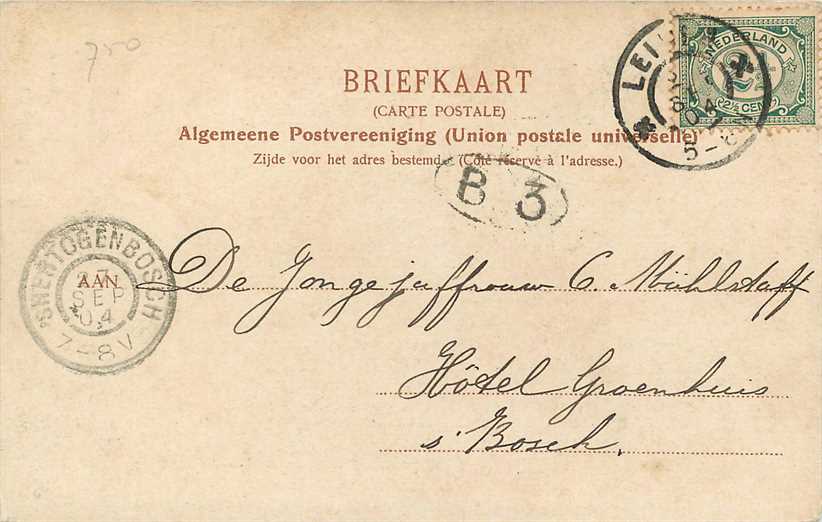 750
BRIEFKAART
(CARTE POSTALE)
Algemeene Postvereeniging (Union postale universelle)
Zijde voor het adres bestemd. (Côté réservé à l'adresse.)
NEDERLAND
2½ CENT
LEI
SEP
04
5-6
B 3
'SHERTOGENBOSCH
27
SEP
04
7-8V
AAN
De Jongejuffrouw C. Mühlstaff
Hôtel Groenhuis
s' Bosch.